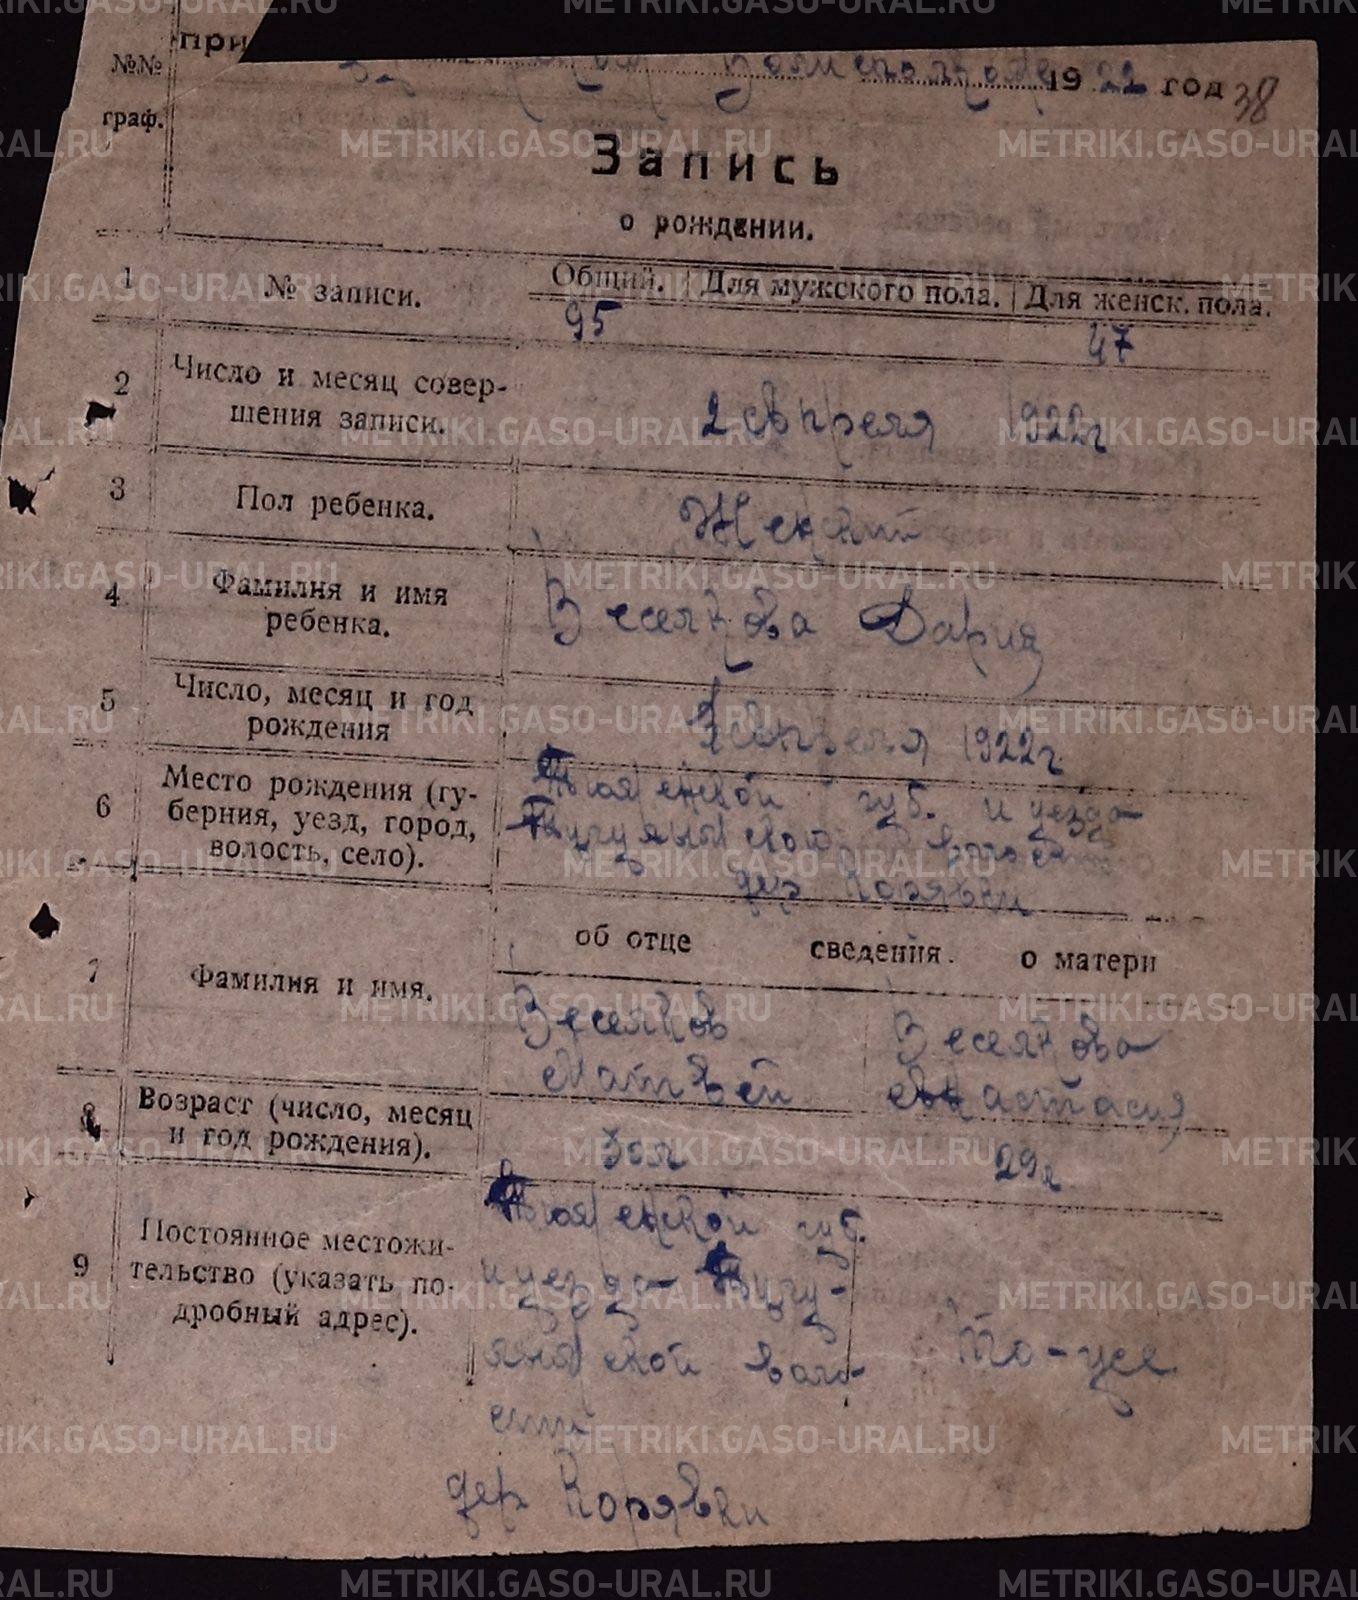 №№
граф.
при
Волисполкоме 1922 год 38
Запись
о рождении.
1 № записи. Общий. Для мужского пола. Для женск. пола.
95 47
2 Число и месяц совер-
шения записи.
2 апреля 1922г
3 Пол ребенка. Женский
4 Фамилия и имя
ребенка.
Веселкова Дария
5 Число, месяц и год
рождения
1 апреля 1922г
6 Место рождения (гу-
берния, уезд, город,
волость, село).
Тюменской губ. и уезда
Тугулымской волости
дер Корявки
об отце сведения. о матери
7 Фамилия и имя.
Веселков Веселкова
Матвей Анастасия
8 Возраст (число, месяц
и год рождения).
30л 29л
9 Постоянное местожи-
тельство (указать по-
дробный адрес).
Тюменской губ.
и уезда Тугу-
лымской воло-
сти
дер Корявки
То-же
METRIKI.GASO-URAL.RU